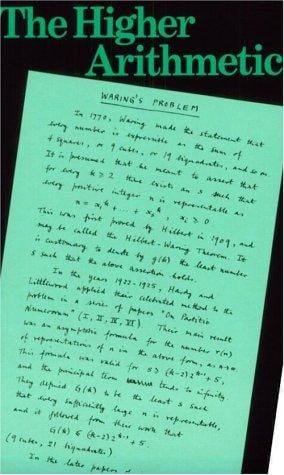 The Higher
Arithmetic
WARING'S PROBLEM
In 1770, Waring made the statement that
every number is expressible as the sum of
4 squares, or 9 cubes, or 19 biquadrates, and so on.
It is presumed that he meant to assert that
for every k ≥ 2 there exists an s such that
every positive integer n is representable as
n = x₁ᵏ + ... + xₛᵏ, xᵢ ≥ 0.
This was first proved by Hilbert in 1909, and
may be called the Hilbert-Waring Theorem. It
is customary to denote by g(k) the least number
s such that the above assertion holds.
In the years 1922-1925, Hardy and
Littlewood applied their celebrated method to the
problem in a series of papers "On Partitio
Numerorum" (I, II, IV, VI). Their main result
was an asymptotic formula for the number r(n)
of representations of n in the above form, as n→∞.
This formula was valid for s ≥ (k-2)2ᵏ⁻¹+5,
and the principal term tends to infinity.
They defined G(k) to be the least s such
that every sufficiently large n is representable,
and it followed from their work that
G(k) ≤ (k-2)2ᵏ⁻¹+5.
(9 cubes, 21 biquadrates.)
In the later papers